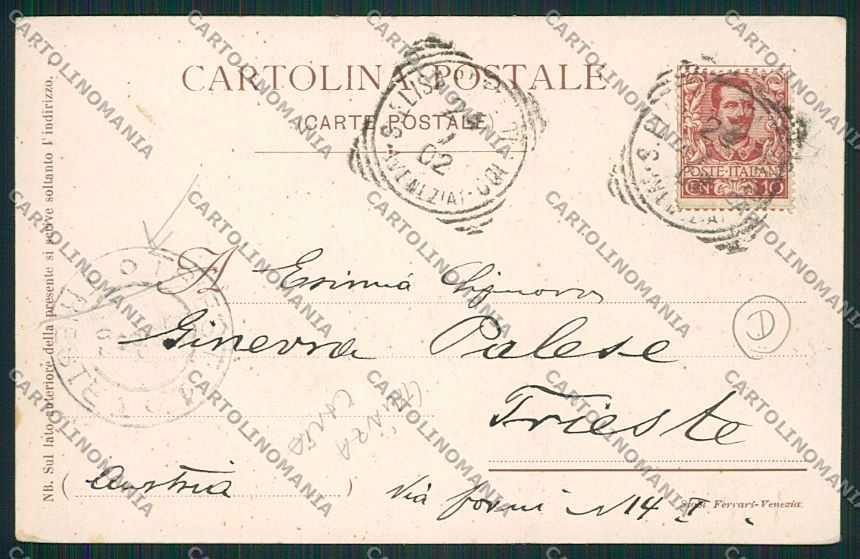 CARTOLINA POSTALE
(CARTE POSTALE)
02
POSTE·ITALIANE
CEN 10
NB. Sul lato anteriore della presente si scrive soltanto l'indirizzo.
A Esimia Signora
Ginevra Palese
Trieste
(Austria)
Via forni N 14 I
Ferrari-Venezia.
CARTOLINOMANIA